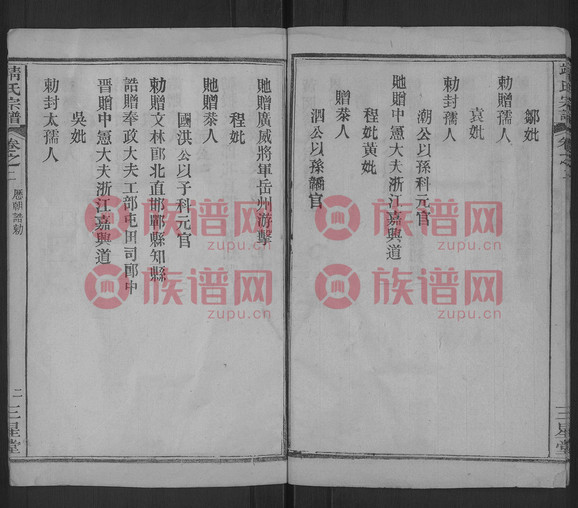 鄒妣
勅贈孺人
袁妣
勅封孺人
潮公以孫科元官
貤贈中憲大夫浙江嘉興道
程妣黃妣
贈恭人
泗公以孫譎官
貤贈廣威將軍岳州游擊
程妣
貤贈恭人
國淇公以子科元官
勅贈文林郎北直邯鄲縣知縣
誥贈奉政大夫工部屯田司郎中
晋贈中憲大夫浙江嘉興道
吳妣
勅封太孺人
靖氏宗譜
卷之二
歷朝誥勅
二
三星堂
三星堂
族谱网
zupu.cn
族谱网
zupu.cn
族谱网
zupu.cn
族谱网
zupu.cn